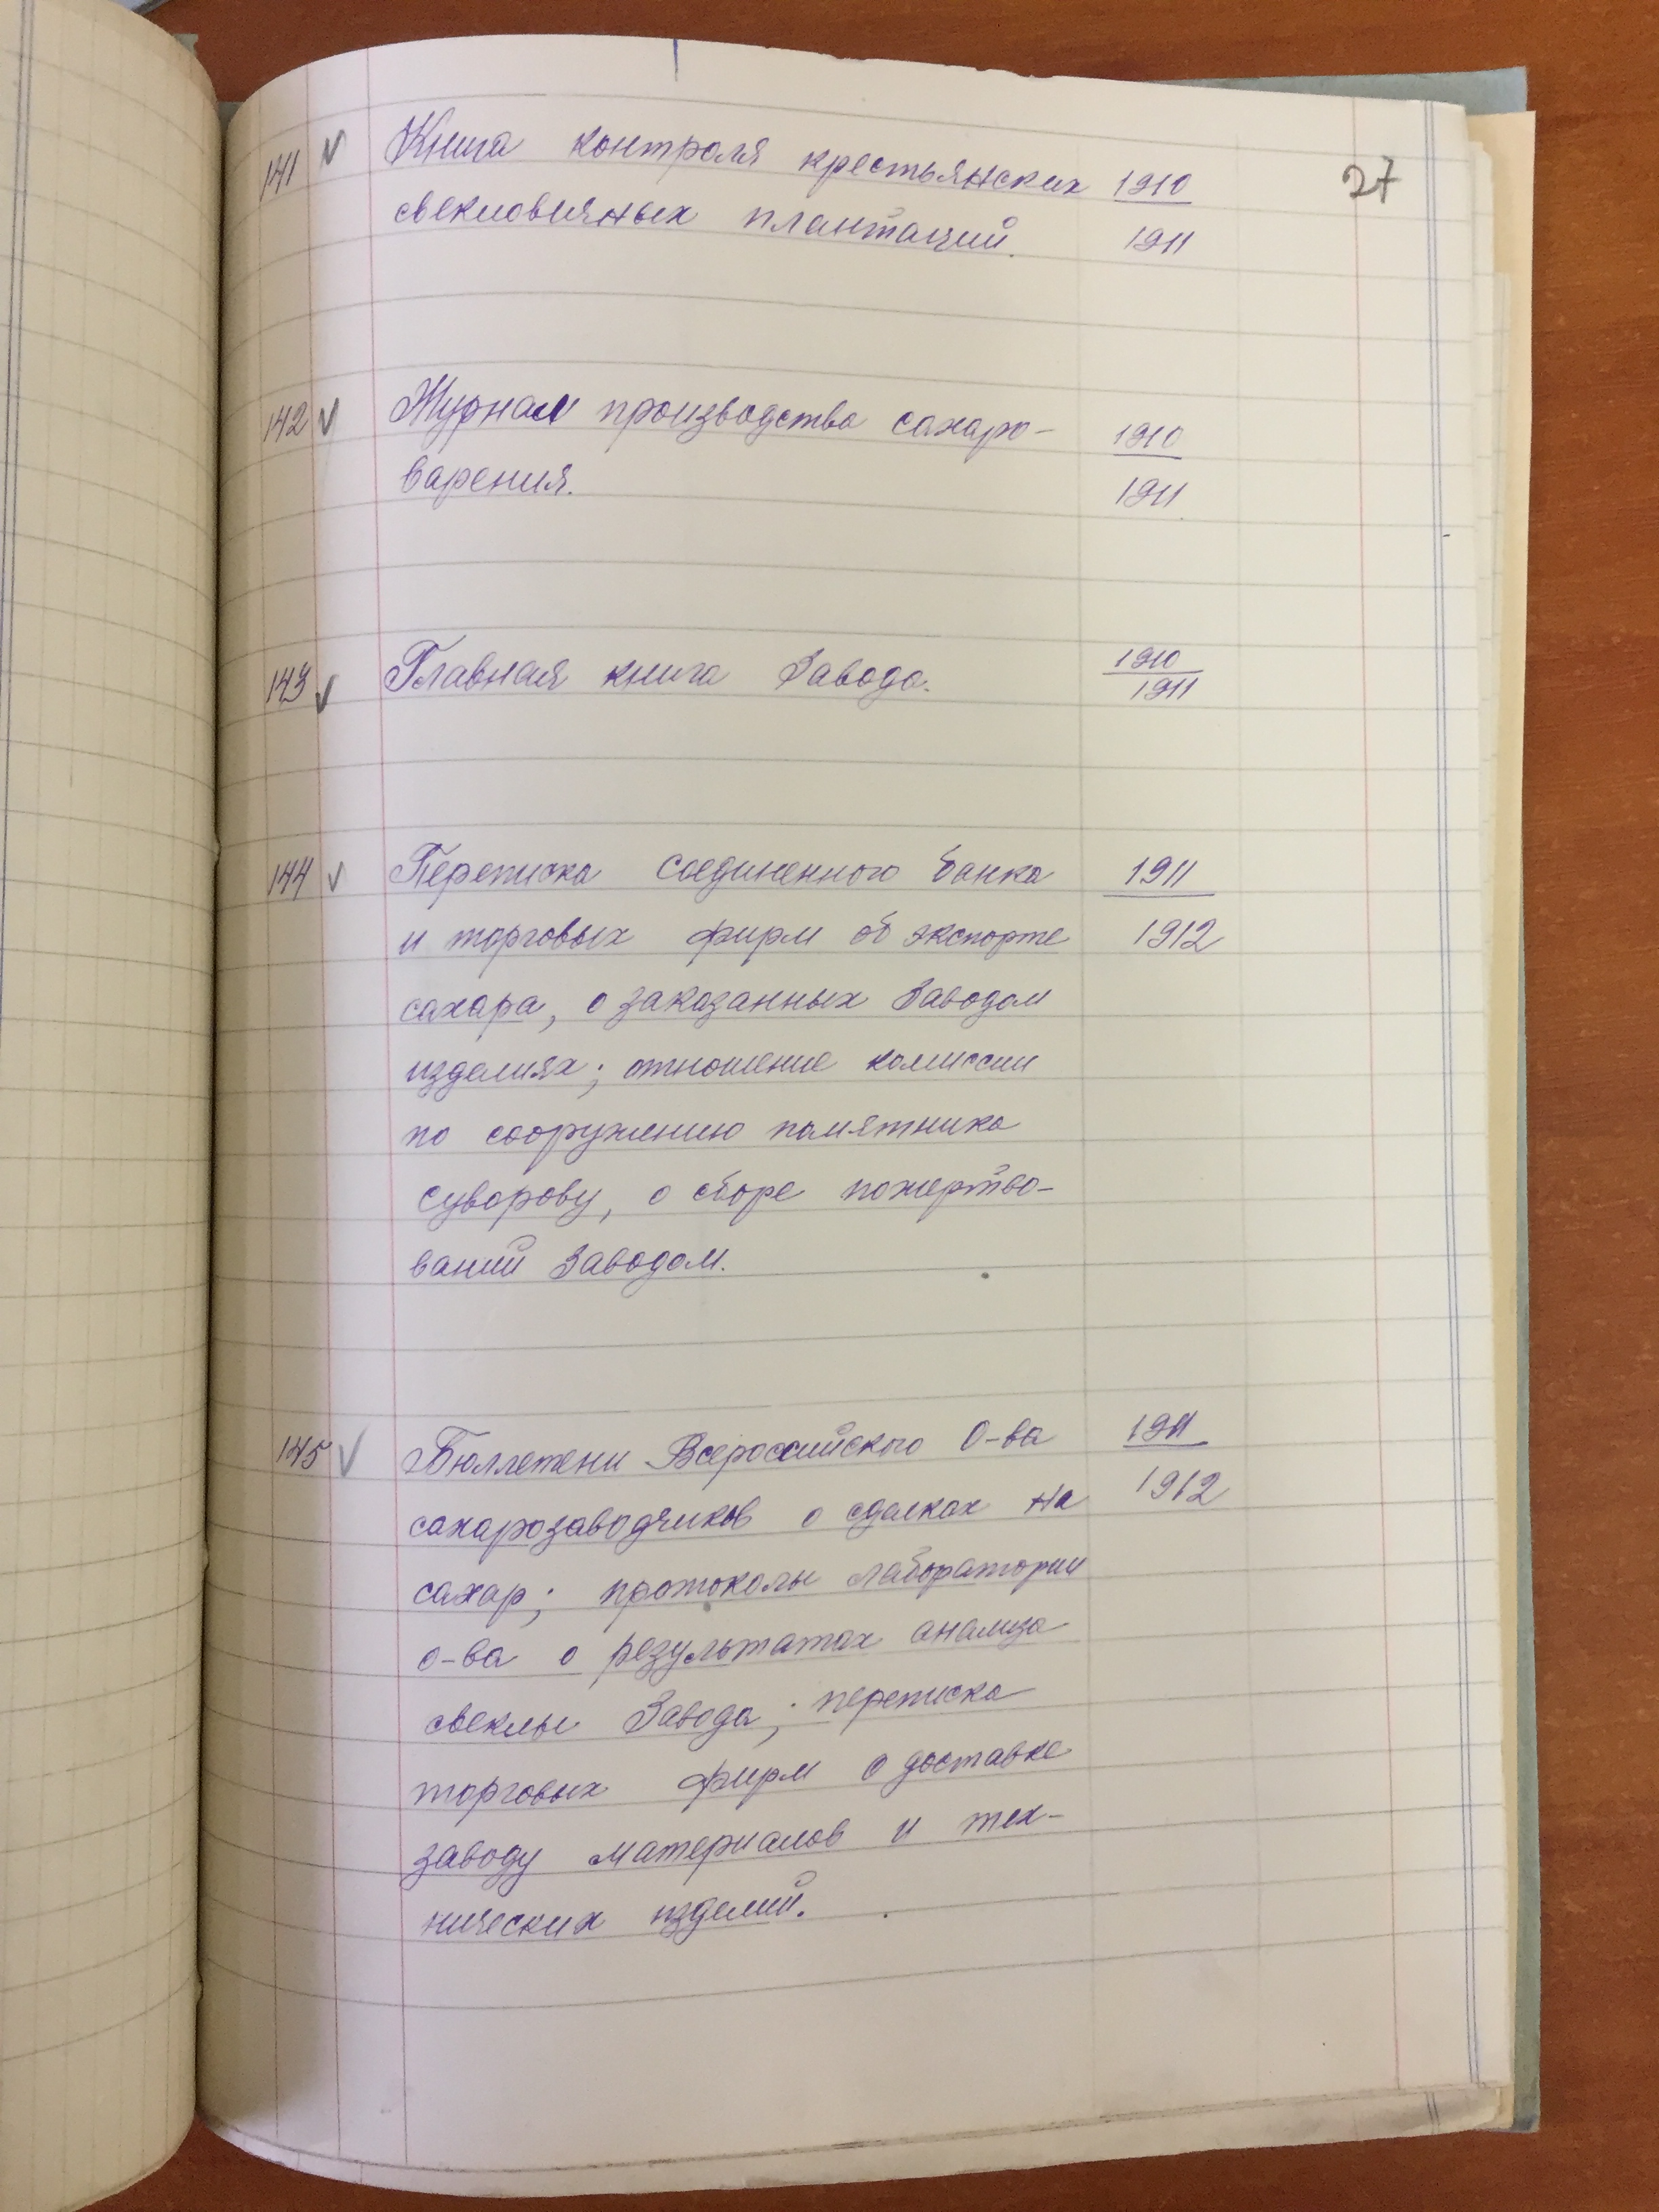 27
141 Книга контроля крестьянских 1910
свекловичных плантаций. 1911
142 Журнал производства сахаро- 1910
варения. 1911
143 Главная книга Завода. 1910
1911
144 Переписка Соединенного банка 1911
и торговых фирм об экспорте 1912
сахара, о заказанных Заводом
изделиях; отношение комиссии
по сооружению памятника
Суворову, о сборе пожертво-
ваний Заводом.
145 Бюллетени Всероссийского О-ва 1911
сахарозаводчиков о сделках на 1912
сахар; протоколы лаборатории
о-ва о результатах анализа
свеклы Завода; переписка
торговых фирм о доставке
заводу материалов и тех-
нических изделий.